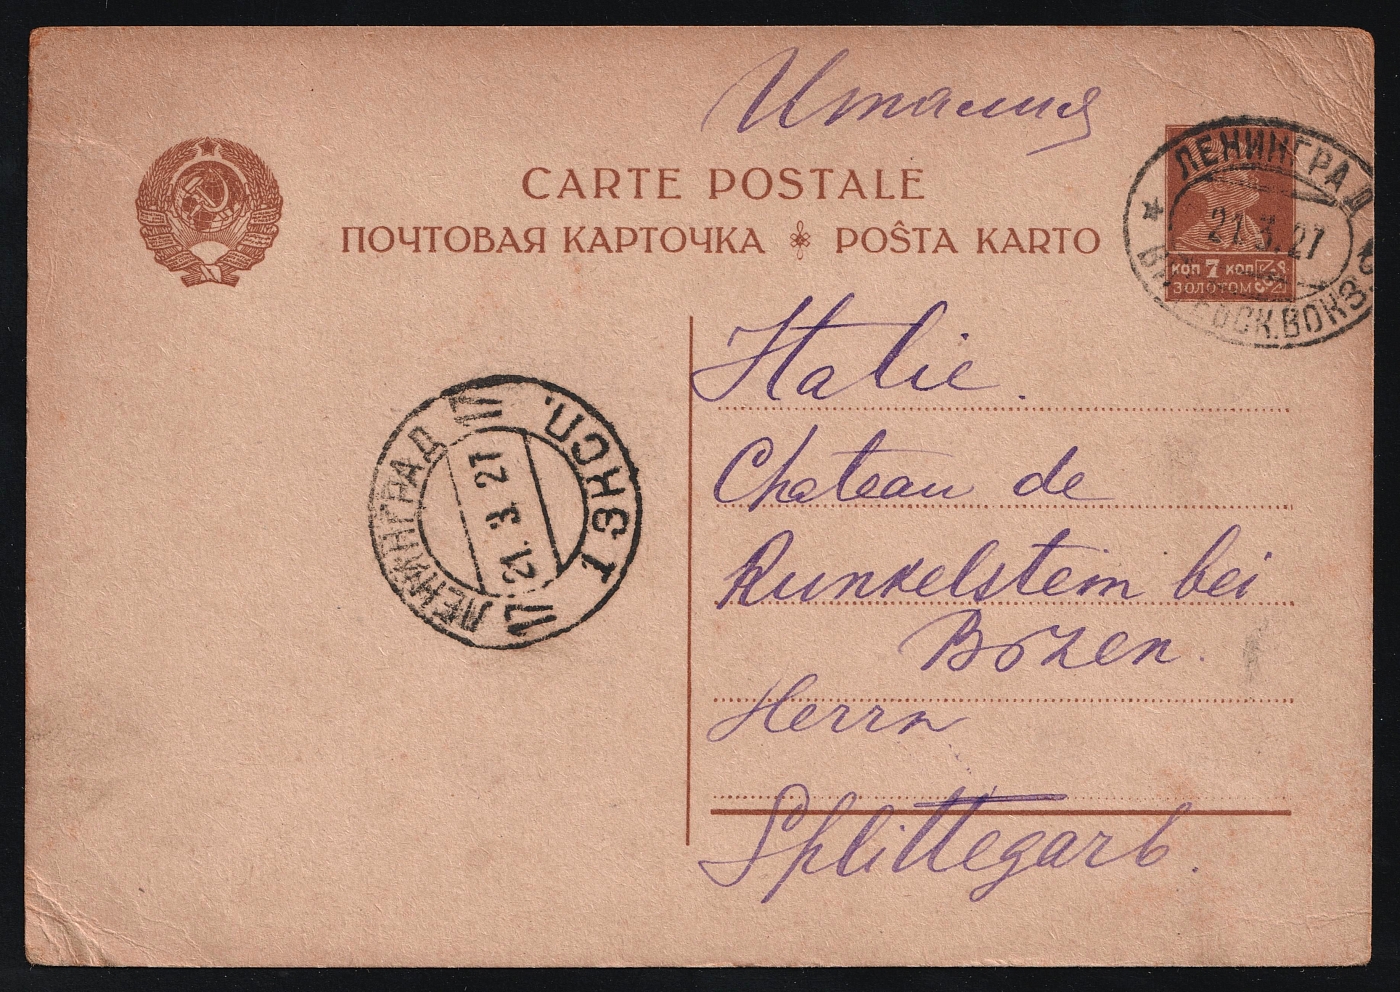 Италия
CARTE POSTALE
ПОЧТОВАЯ КАРТОЧКА POŜTA KARTO
ЛЕНИНГРАД
21.3.27
ВОКЗ
КОП 7 КОП
ЗОЛОТОМ
Italie.
Chateau de
Runkelstein bei
Bozen.
Herrn
Splittegarb.
ЛЕНИНГРАД
21. 3 27
1 ЭКСП.